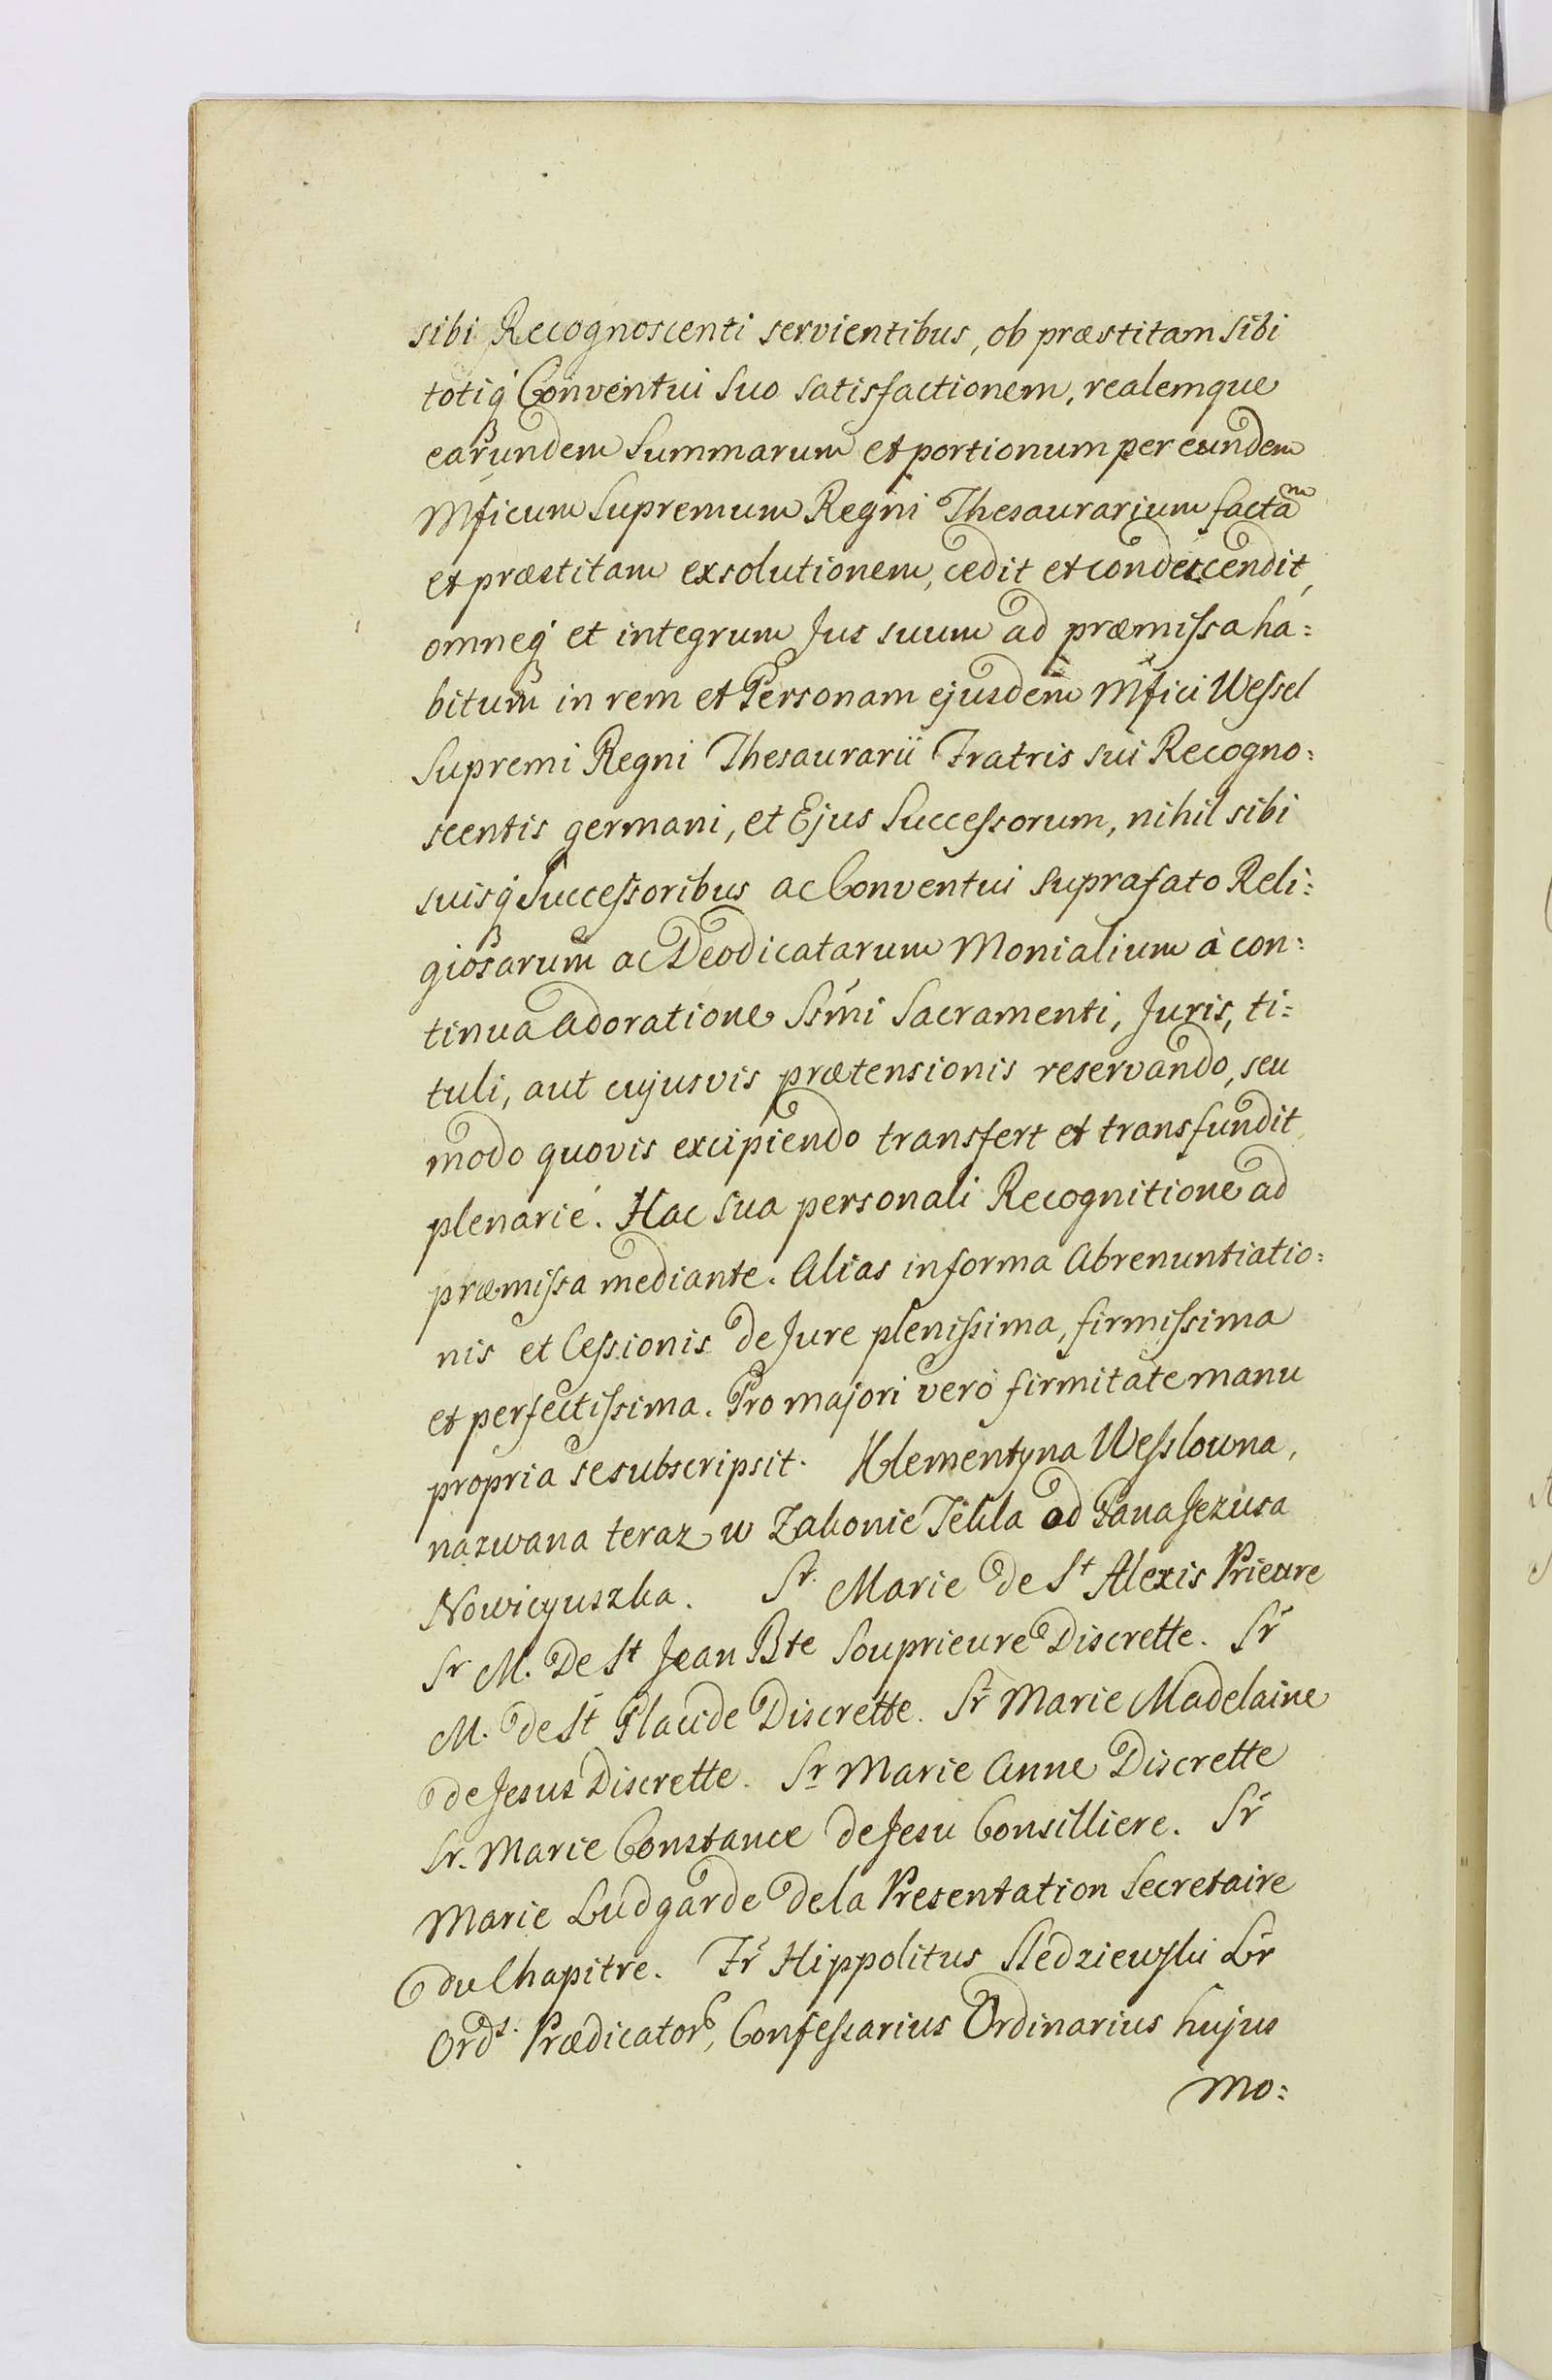 sibi Recognoscenti servientibus, ob præstitam sibi
totiq́ Conventui suo satisfactionem, realemque
earundem Summarum et portionum per eundem
Mficum Supremum Regni Thesaurarium factam
et præstitam exsolutionem, cedit et condescendit,
omneq́ et integrum Jus suum ad præmissa ha=
bitum in rem et Personam ejusdem Mfici Wessel
Supremi Regni Thesaurarii Fratris sui Recogno=
scentis germani, et Ejus Successorum, nihil sibi
suisq́ Successoribus ac Conventui suprafato Reli=
giosarum ac Deodicatarum Monialium à con=
tinua adoratione Ssmi Sacramenti, Juris, ti=
tuli, aut cujusvis prætensionis reservando, seu
modo quovis excipiendo transfert et transfundit
plenarié. Hac sua personali Recognitione ad
præmissa mediante. Alias in forma Abrenuntiatio=
nis et Cessionis de Jure plenissima, firmissima
et perfectissima. Pro majori veró firmitate manu
propria se subscripsit. Klementyna Wesslowna,
nazwana teraz w Zakonie Tekla od Pana Jezusa
Nowicyuszka. Sr. Marie de St Alexis Prieure
Sr M. De St Jean Bte Souprieure Discrette. Sr
M. de St Placide Discrette. Sr Marie Madelaine
de Jesus Discrette. Sr Marie Anne Discrette
Sr. Marie Constance de Jesu Consilliere. Sr
Marie Ludgarde de la Presentation Secretaire
du Chapitre. Fr Hippolitus Sledziewski Lr
Ords. Prædicator, Confessarius Ordinarius hujus
Mo=